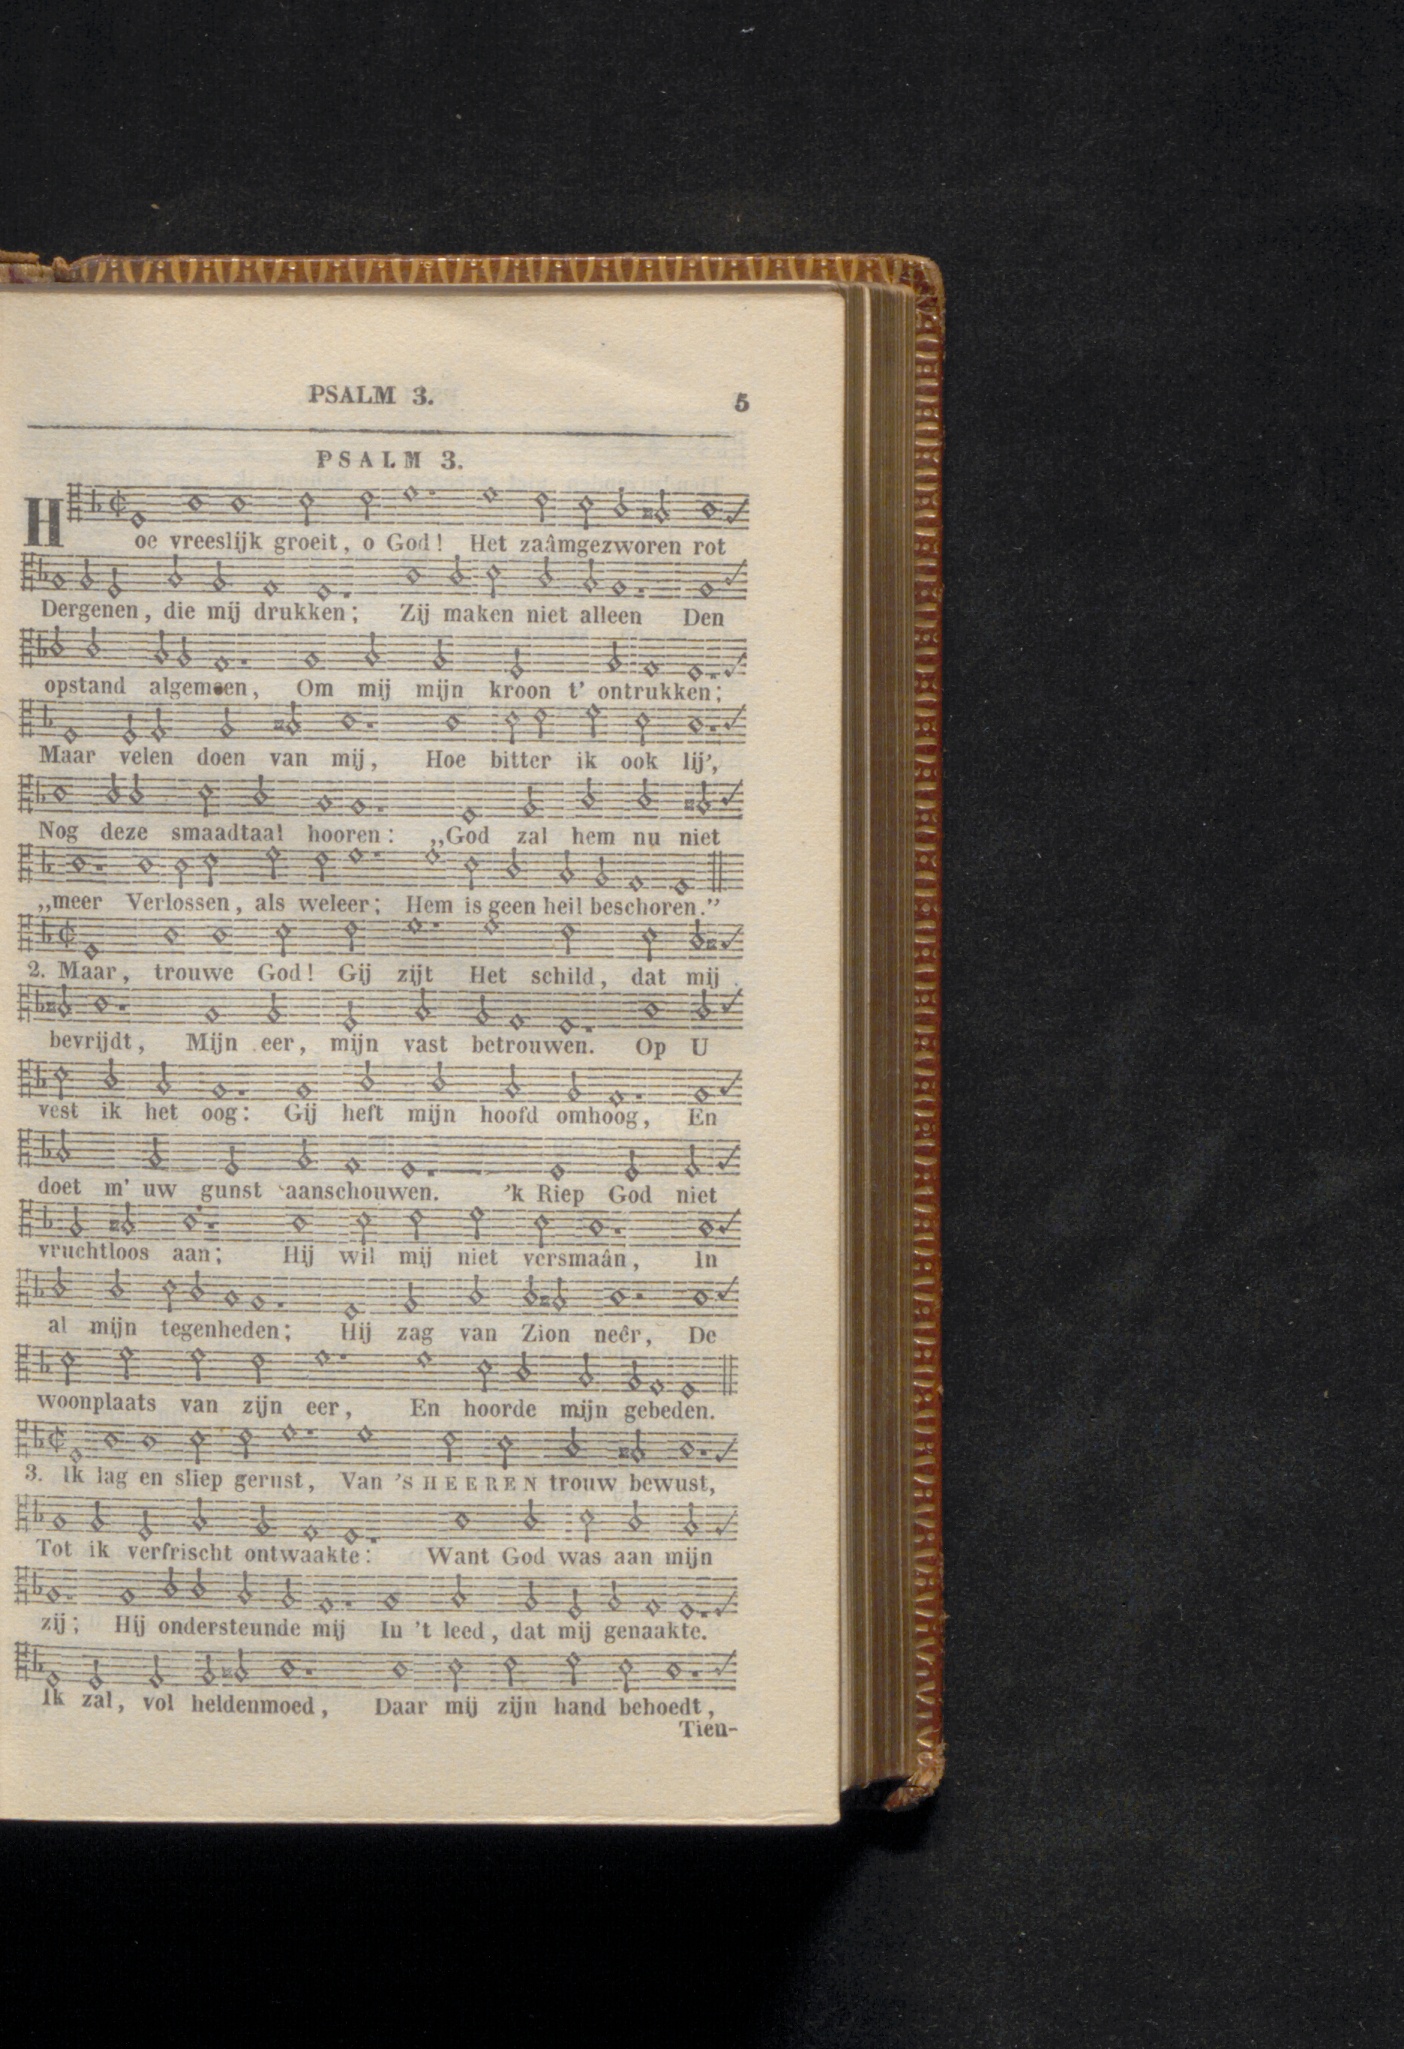 PSALM 3. 5
PSALM 3.
Hoe vreeslijk groeit, o God! Het zaâmgezworen rot
Dergenen, die mij drukken; Zij maken niet alleen Den
opstand algemeen, Om mij mijn kroon t' ontrukken;
Maar velen doen van mij, Hoe bitter ik ook lij',
Nog deze smaadtaal hooren: „God zal hem nu niet
„meer Verlossen, als weleer; Hem is geen heil beschoren.”
2. Maar, trouwe God! Gij zijt Het schild, dat mij
bevrijdt, Mijn eer, mijn vast betrouwen. Op U
vest ik het oog: Gij heft mijn hoofd omhoog, En
doet m' uw gunst aanschouwen. 'k Riep God niet
vruchtloos aan; Hij wil mij niet versmaân, In
al mijn tegenheden; Hij zag van Zion neêr, De
woonplaats van zijn eer, En hoorde mijn gebeden.
3. Ik lag en sliep gerust, Van 's HEEREN trouw bewust,
Tot ik verfrischt ontwaakte: Want God was aan mijn
zij; Hij ondersteunde mij In 't leed, dat mij genaakte.
Ik zal, vol heldenmoed, Daar mij zijn hand behoedt,
Tien-